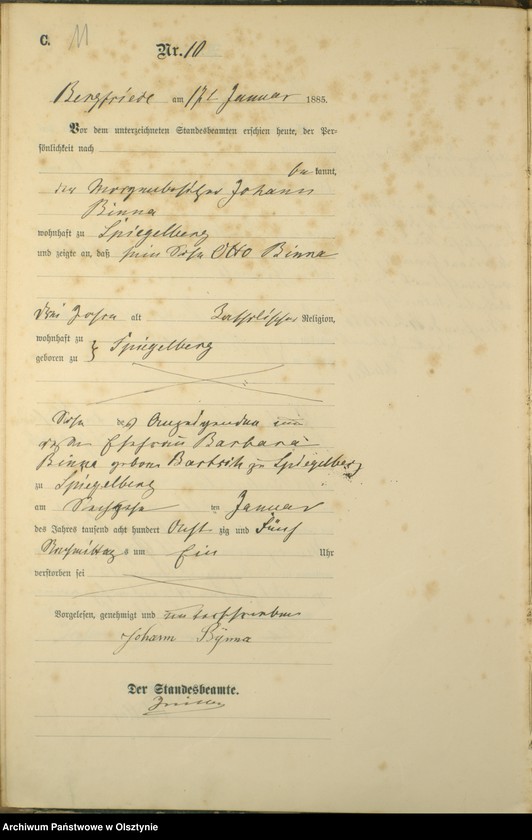 C. 11
Nr. 10
Bergfriede am 17t Januar 1885.
Vor dem unterzeichneten Standesbeamten erschien heute, der Per-
sönlichkeit nach
be kannt,
der Morgenbesitzer Johann
Binna
wohnhaft zu Spiegelberg
und zeigte an, daß sein Sohn Otto Binna
drei Jahre alt katholischer Religion,
wohnhaft zu
geboren zu } Spiegelberg
Sohn des Anzeigenden und
Ehefrau Barbara
Binna geborne Bartsch zu Spiegelberg
zu Spiegelberg
am ten Januar
des Jahres tausend acht hundert Acht zig und Fünf
Nachmittag s um Ein Uhr
verstorben sei
Vorgelesen, genehmigt und unterschrieben
Johann Bynna
Der Standesbeamte.
Archiwum Państwowe w Olsztynie